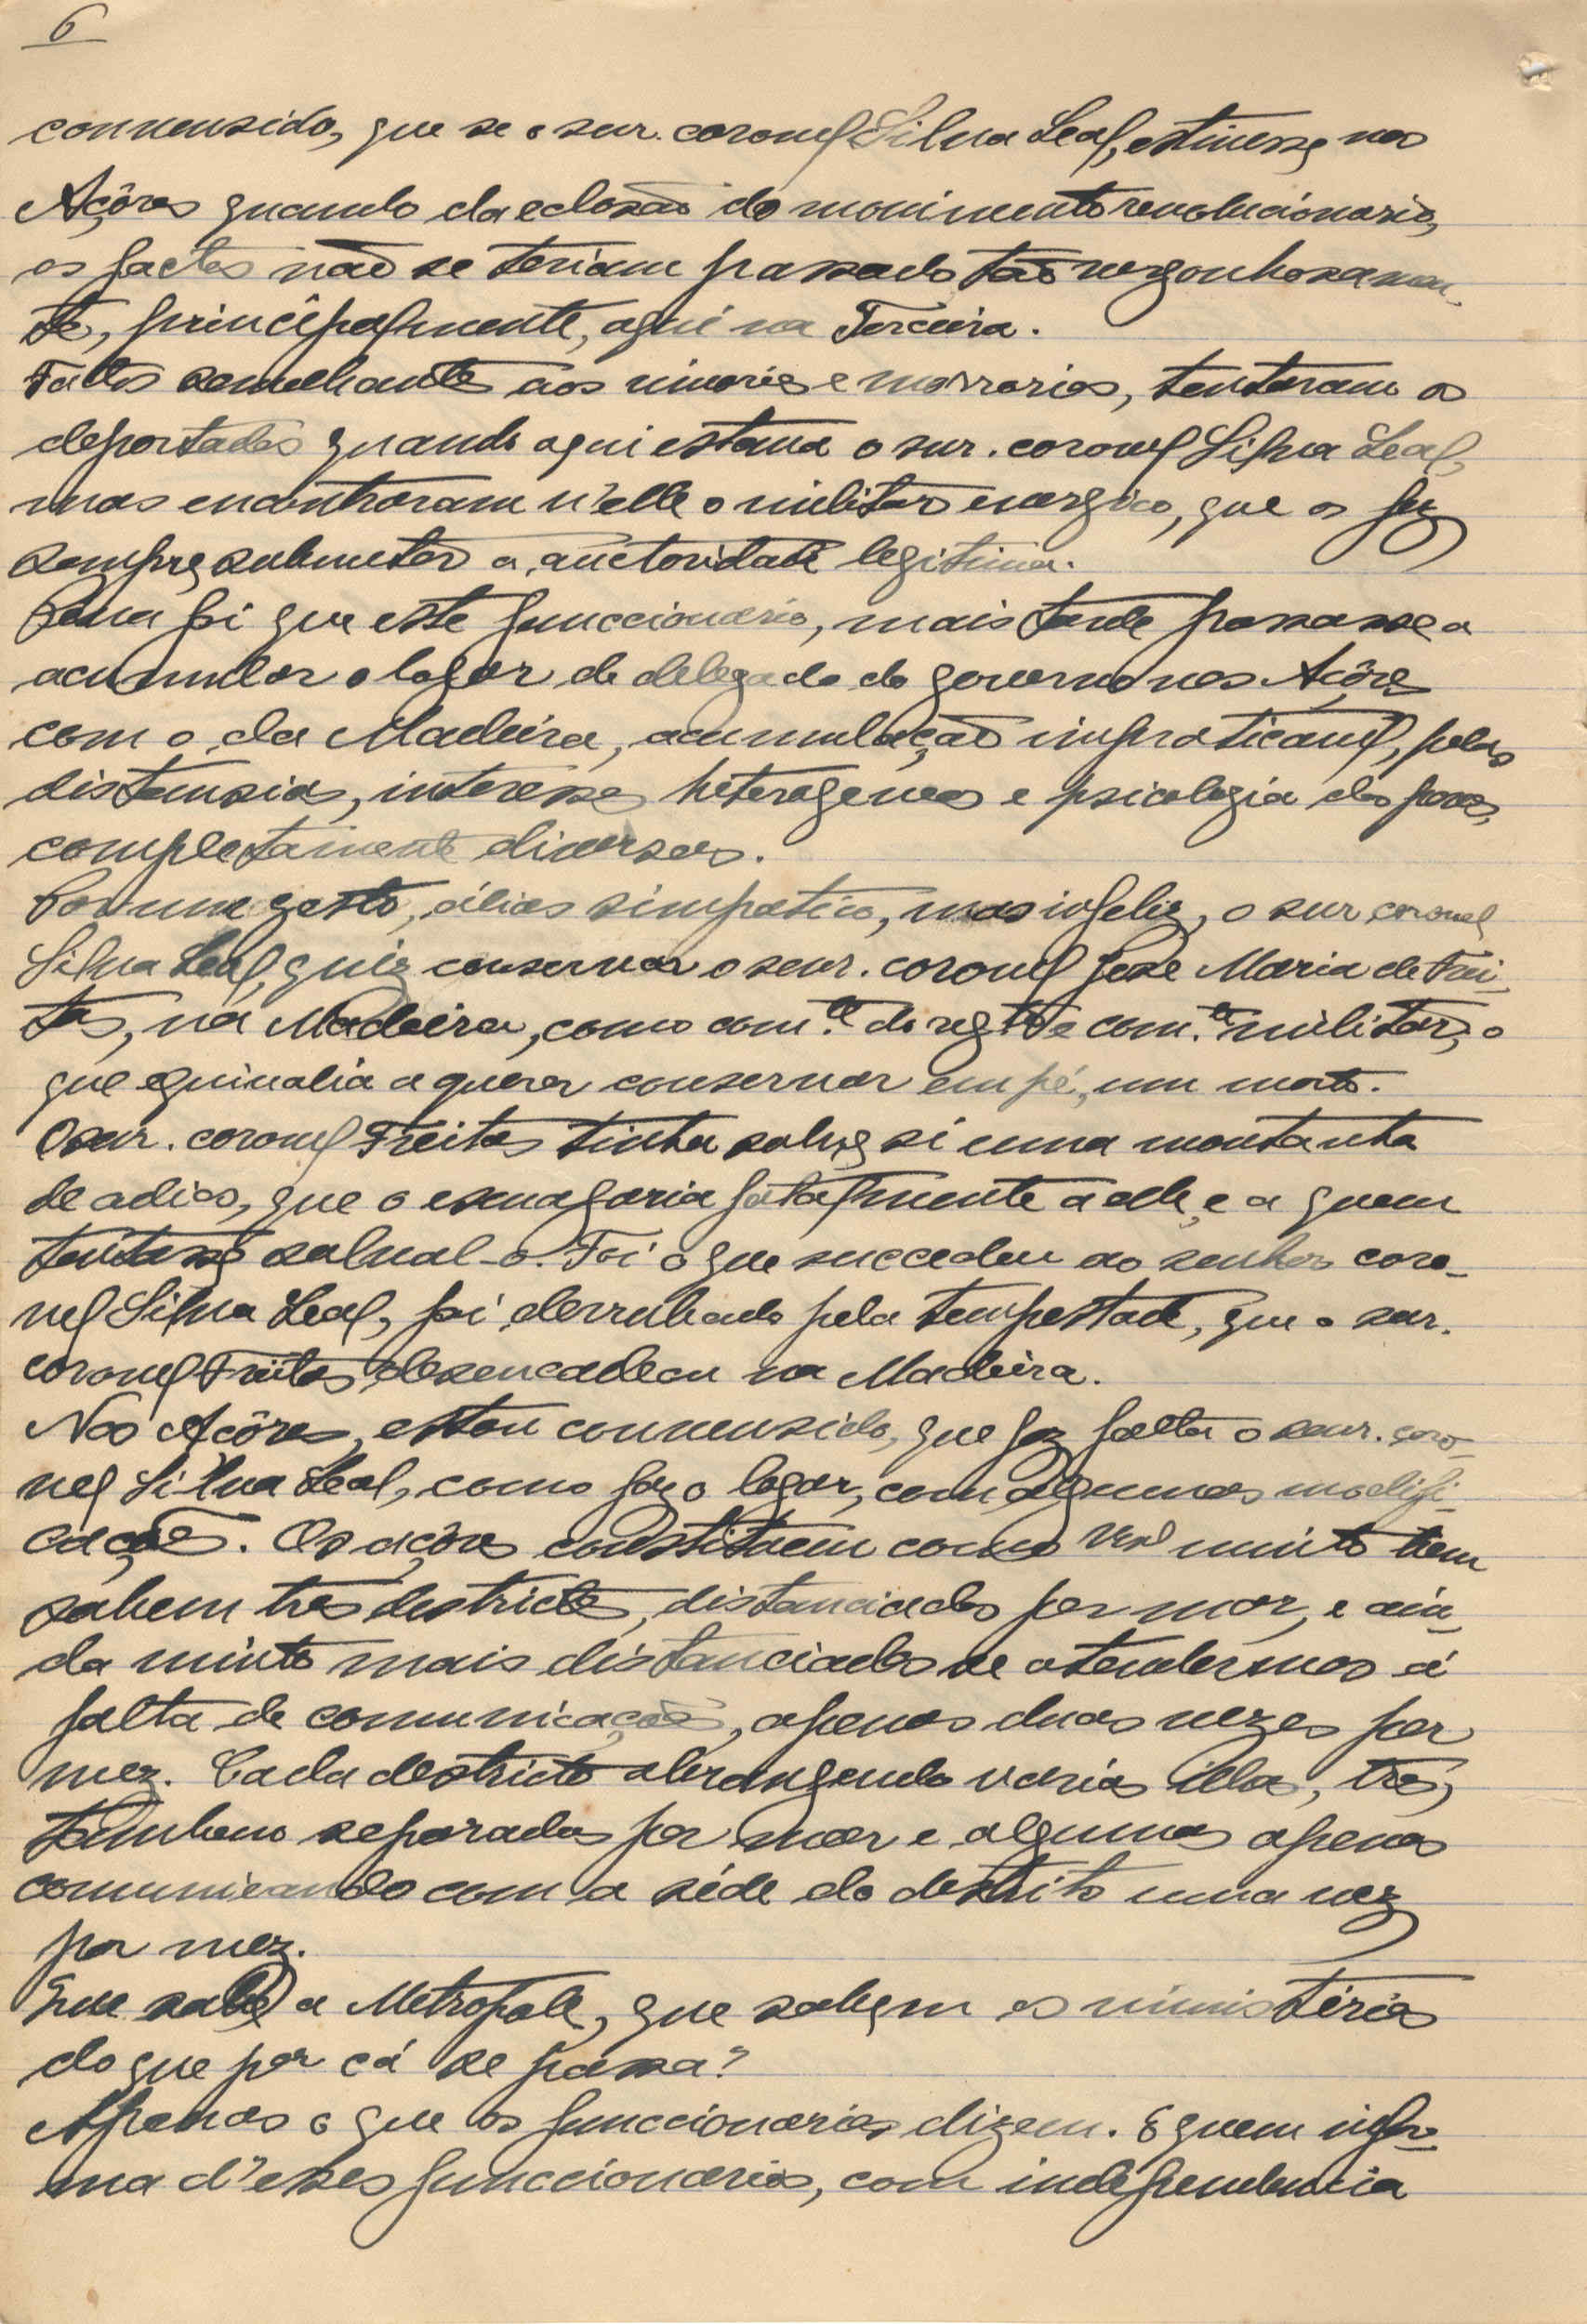 6
convensido, que se o snr. coronel Silva Leal, estivesse nos
Açôres quando da eclosão do movimento revolucionario,
os factos não se teriam passado tão vergonhosamen-
te, principalmente, aqui na Terceira.
Factos semelhantes aos e tentaram os
deportados quando aqui estava o snr. coronel Silva Leal,
mas encontraram n'elle o militar energico, que os fez
sempre submeter a auctoridade legitima.
Pena foi que este funccionario, mais tarde passasse a
acumular o logar de delegado do governo nos Açôres
com o da Madeira, acumulação impraticavel, pelas
distansias, interesses heterogeneos e psicologia dos povos,
completamente diversos.
Por um gesto, álias simpatico, mas infeliz, o snr coronel
Silva Leal, quiz conservar o snr. coronel José Maria de Frei-
tas, na Madeira, como com.te do regt.º e com.te militar, o
que equivalia a querer conservar em pé, um morto.
O snr. coronel Freitas tinha sobre si uma montanha
de odios, que o esmagaria fatalmente a elle, e a quem
tentasse salval-o. Foi o que succedeu ao senhor coro-
nel Silva Leal, foi derrubado pela tempestade, que o snr.
coronel Freitas desencadeou na Madeira.
Nos Açôres, estou convensido, que faz falta o snr. coro-
nel Silva Leal, como faz o logar, com algumas modifi-
cações. Os açôres constituem como muito bem
sabem tres destrictos, distanciados por mar, e ain-
da muito mais distanciados se atendermos á
falta de comunicações, apenas duas vezes por
mez. Cada destricto abrangendo varias ilhas, tres,
tambem separadas por mar e algumas apenas
comunicando com a séde do destrito uma vez
por mez.
Que sabe a Metropole, que sabem os ministérios
do que por cá se passa?
Apenas o que os funccionarios dizem. E quem infor-
ma d'esses funccionarios, com independencia